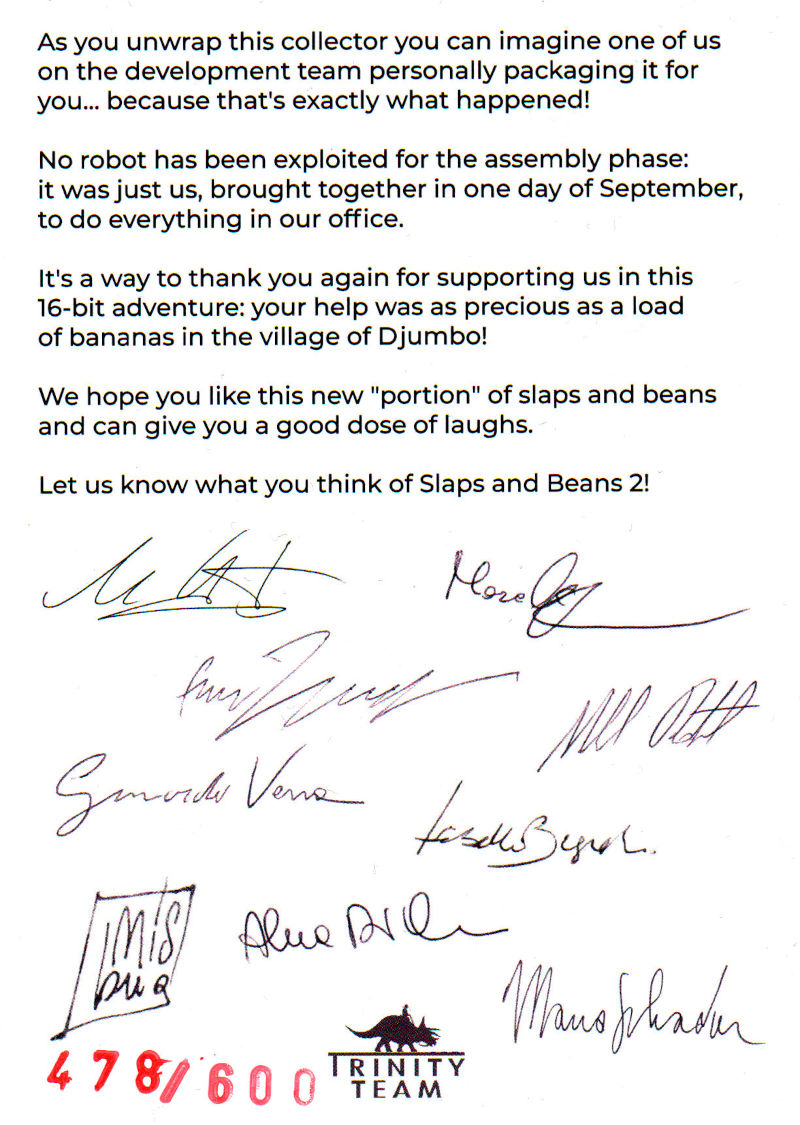 As you unwrap this collector you can imagine one of us
on the development team personally packaging it for
you... because that's exactly what happened!
No robot has been exploited for the assembly phase:
it was just us, brought together in one day of September,
to do everything in our office.
It's a way to thank you again for supporting us in this
16-bit adventure: your help was as precious as a load
of bananas in the village of Djumbo!
We hope you like this new "portion" of slaps and beans
and can give you a good dose of laughs.
Let us know what you think of Slaps and Beans 2!
478/600
TRINITY
TEAM